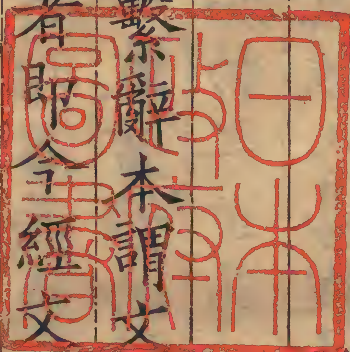 繫辭本謂文
者即今經文
日本
政府
圖書